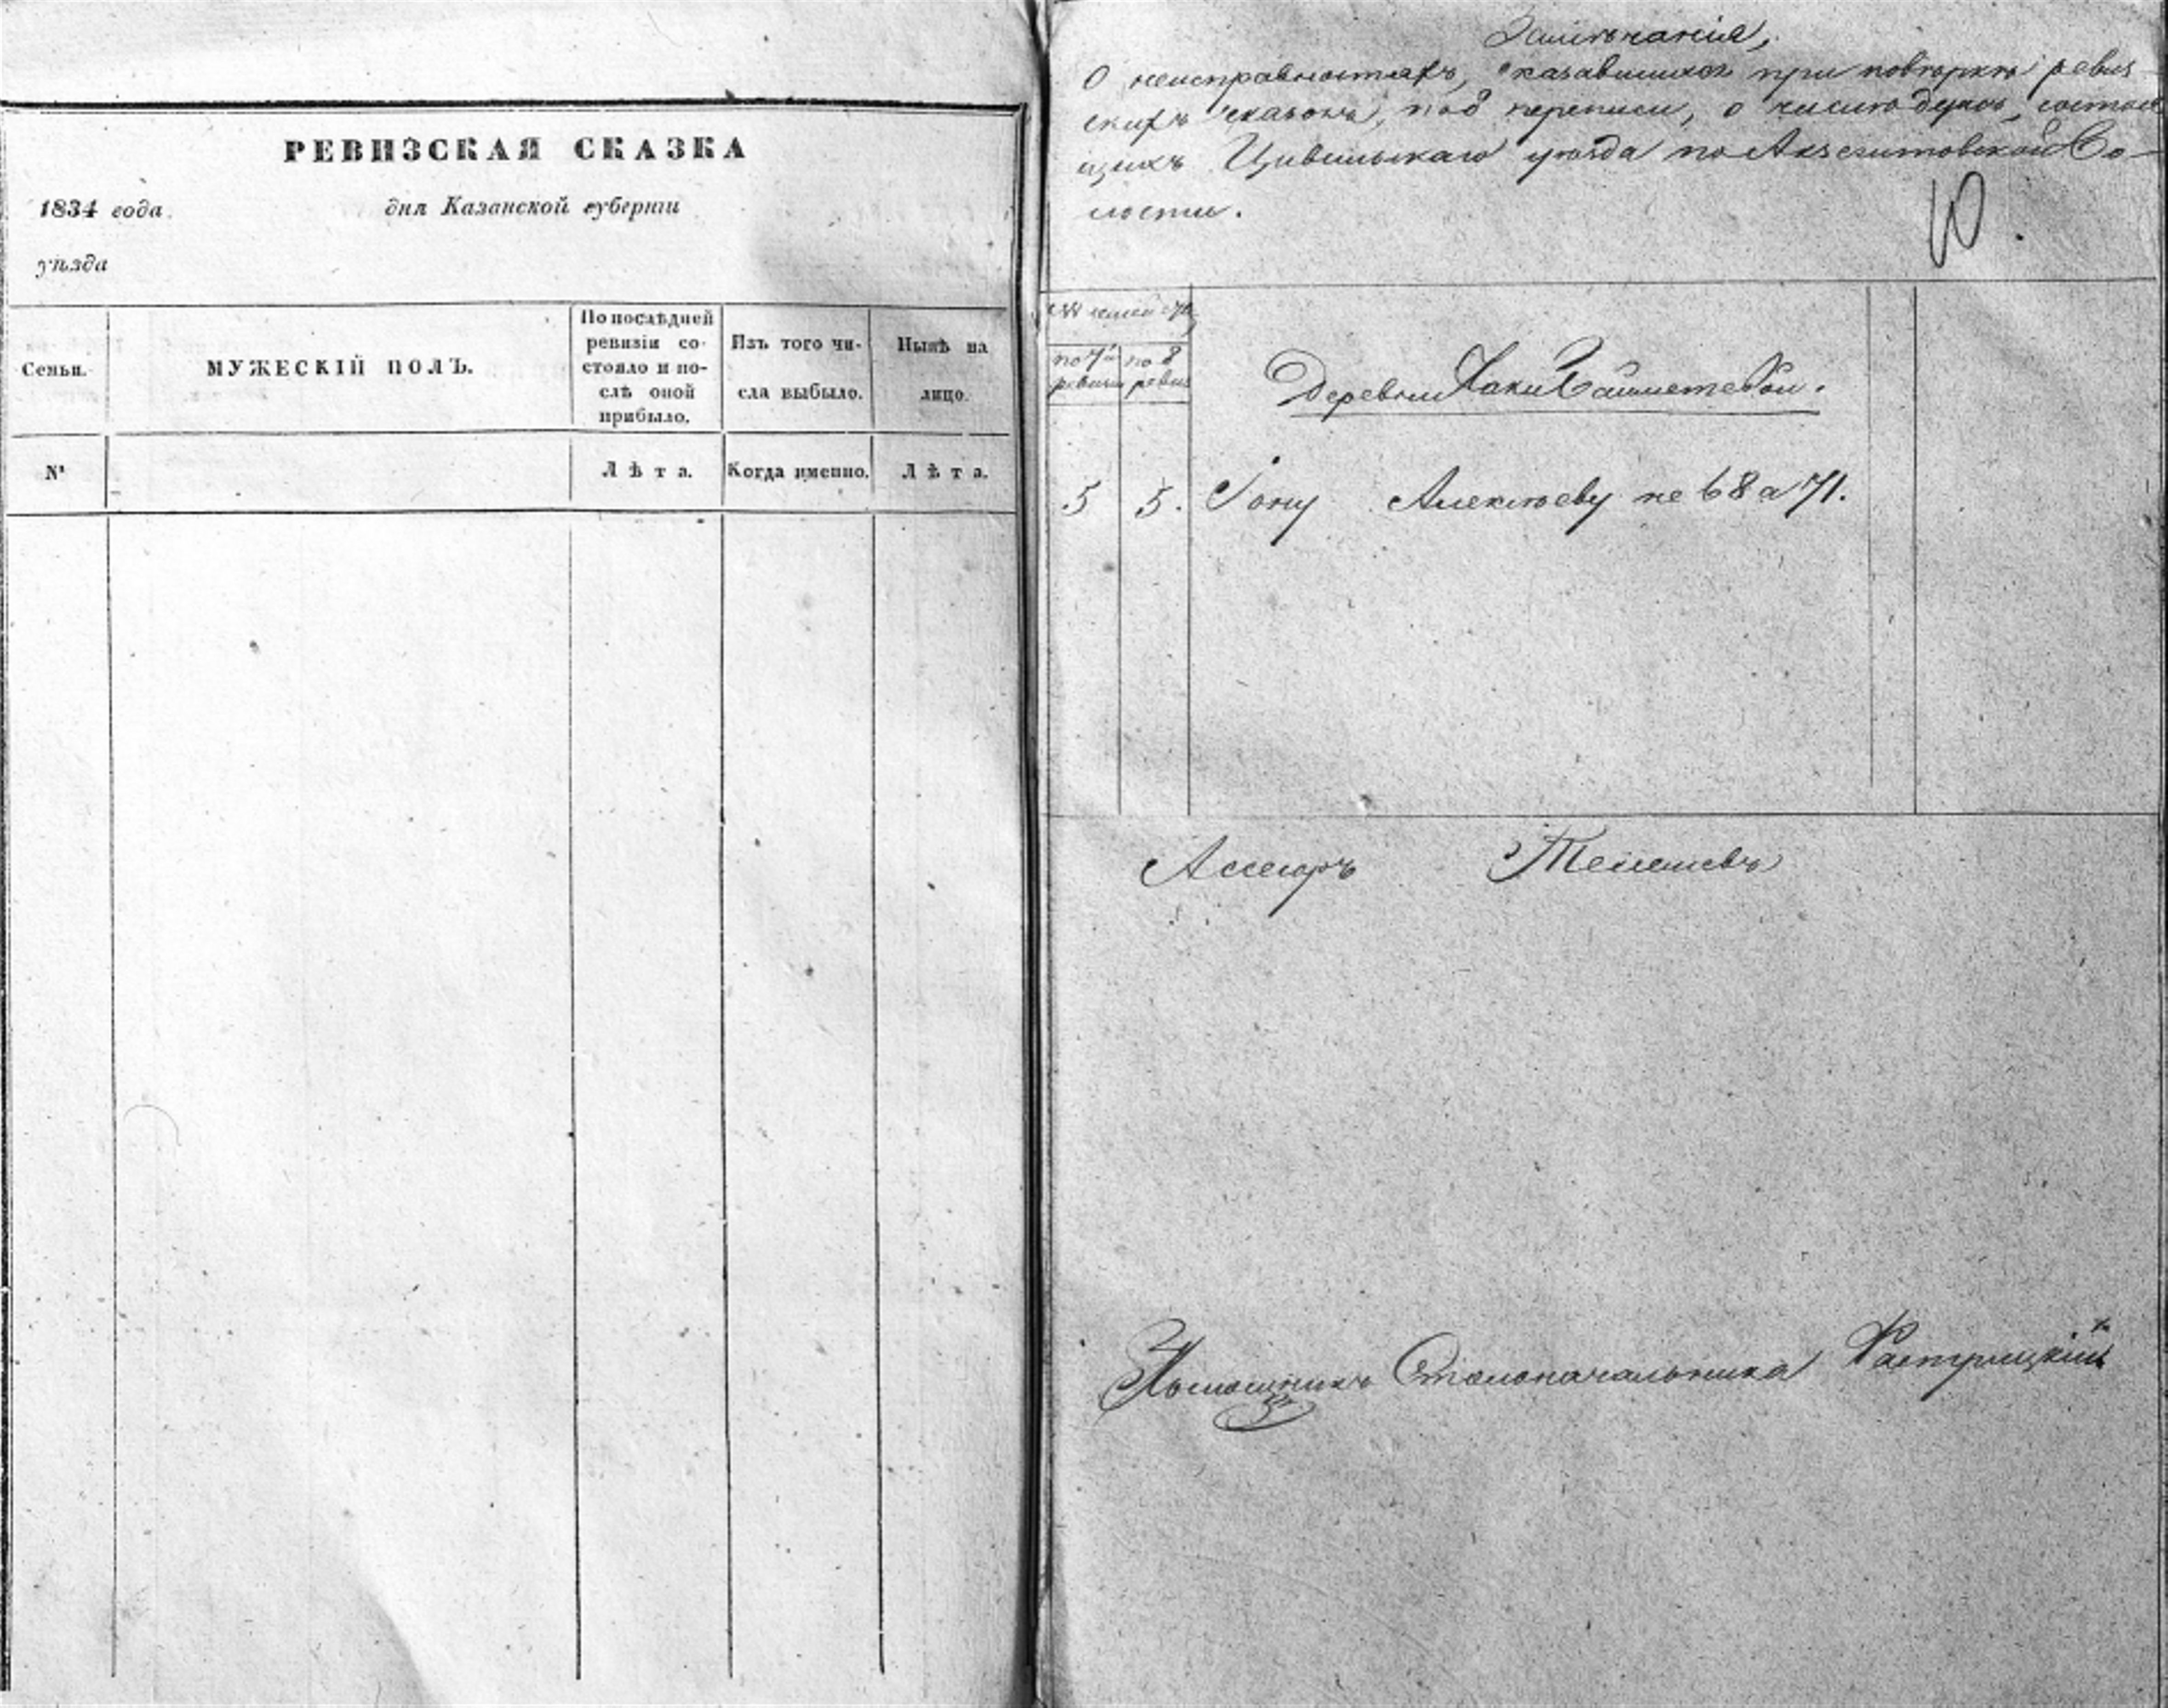 РЕВИЗСКАЯ СКАЗКА
1834 года дня Казанской губерніи
уѣзда
Семьи.
МУЖЕСКІЙ ПОЛЪ.
По послѣдней
ревизіи со-
стояло и по-
слѣ оной
прибыло.
Изъ того чи-
сла выбыло.
Нынѣ на
лицо.
№
Лѣта.
Когда именно.
Лѣта.
Замѣчанія,
О неисправностяхъ, оказавшихся при повѣркѣ ревиз-
скихъ сказокъ, 8 переписи, о числѣ душъ, состоя
щихъ Цивильскаго уѣзда по Во-
лости.
10.
№ семей
по 7й
ревизіи
по 8
ревиз
Деревни
5 5. Іону Алексѣеву не 68 а 71.
Ассесоръ
Помощникъ Столоначальника